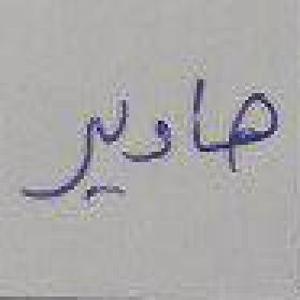 هاوير